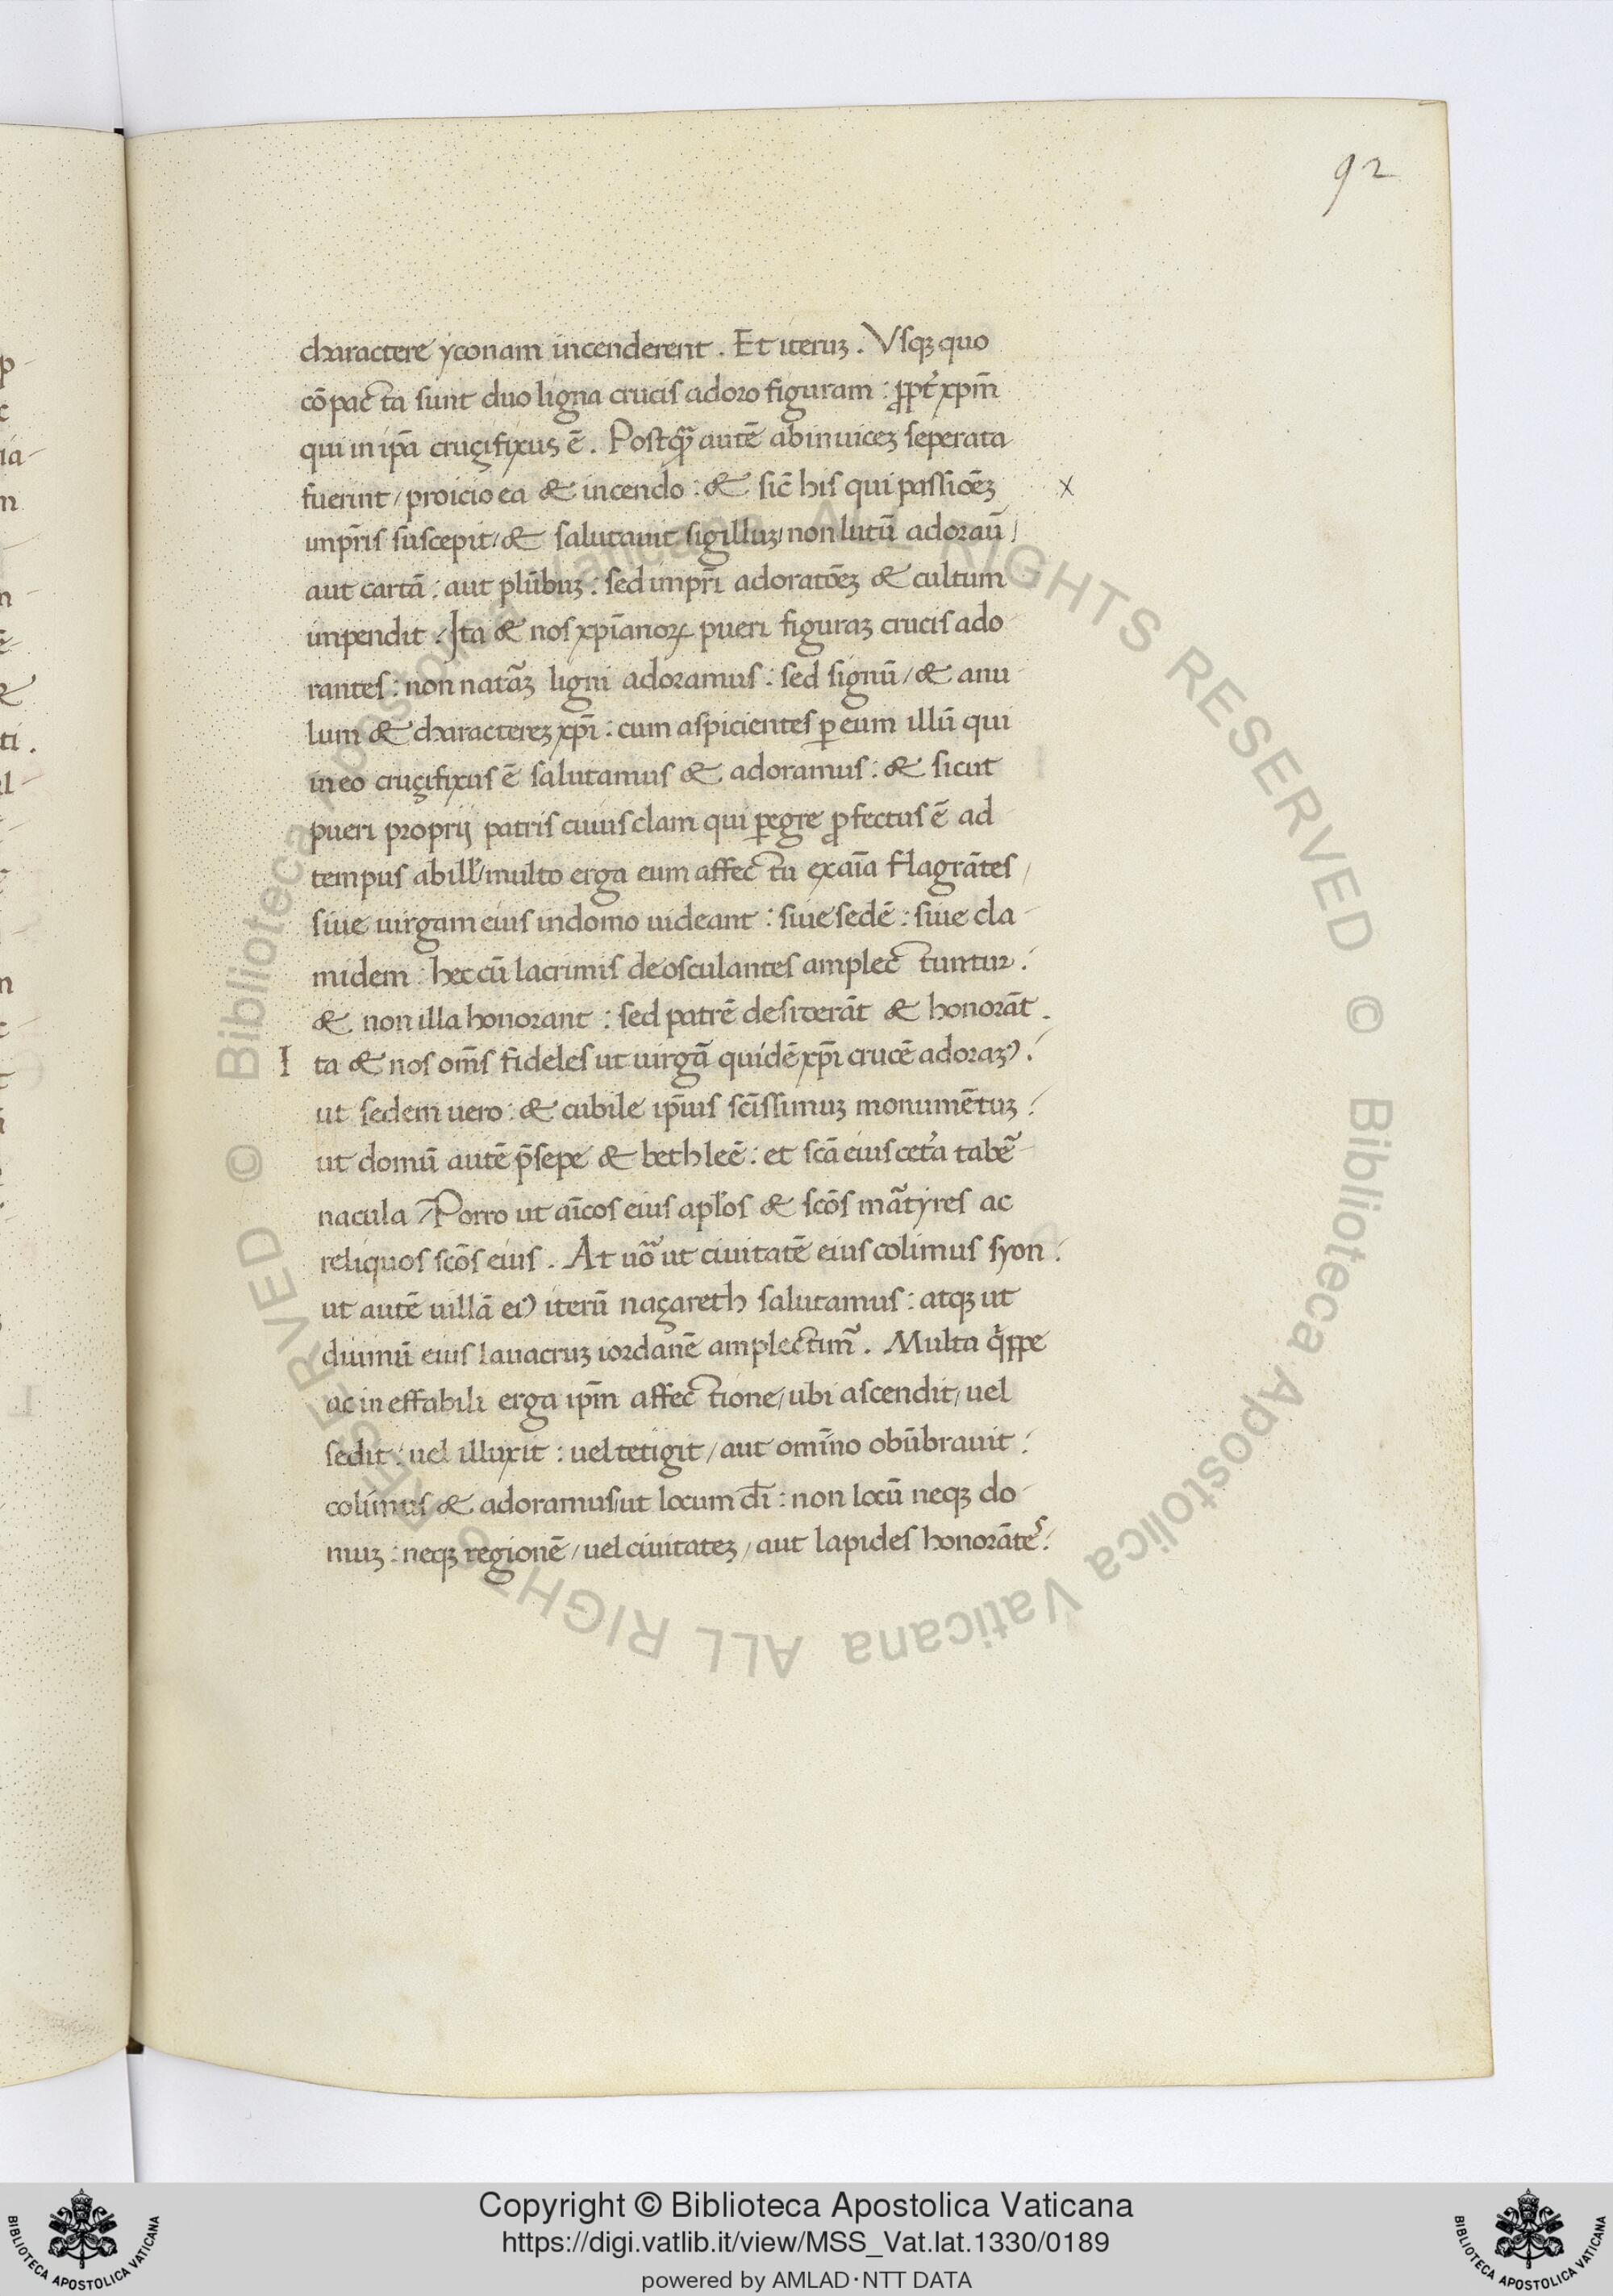 92
charactere yconam incenderent. Et iteruꝫ. Vsqꝫ quo
cōpacta sunt duo ligna crucis adoro figuram: ꝓpt̉ xp̄m
qui in ip̄a cruçifixus ē. Postqꝫ̃ autē abinuiceꝫ seperata
fuerint / proicio ea & incendo: & sic̄ his qui passiōēꝫ
x
imp̄ris suscepit / & salutauit sigilluꝫ / non lutū adorau̅ /
aut cartā: aut plūbuꝫ: sed imp̄ri adoratōēꝫ & cultum
inpendit. Ita & nos xp̄ianoꝝ pueri figuraꝫ crucis ado
rantes: non nat̃aꝫ ligni adoramus: sed signū / & anu
lum & charactereꝫ xp̄i: cum aspicientes ꝑ eum illū qui
in eo cruçifixus ē salutamus & adoramus: & sicut
pueri proprij patris cuiusclam qui ꝑegre ꝓfectus ē ad
tempus ab ill̓ / multo erga eum affectu ex aīa flagrātes /
siue uirgam eius in domo uideant: siue sedē: siue cla
midem: hec cū lacrimis deosculantes amplectuntur:
& non illa honorant: sed patrē desiderāt & honorāt.
Ita & nos om̄s fideles ut uirgā quidē xp̄i crucē adoraꝫꝰ:
ut sedem uero: & cubile ip̄ius sc̄issimuꝫ monumētuꝫ:
ut domū autē p̄sepe & bethleē: et sc̄a eius cet̉a tabẽ
nacula. Porro ut aīcos eius apl̓os & sc̄os mãtyres ac
reliquos sc̄os eius. At uõ ut ciuitatē eius colimus syon:
ut autē uillā eiꝰ iterū naçareth salutamus: atqꝫ ut
diuinū eius lauacruꝫ iordanē amplectim̃. Multa q̓ppe
ac ineffabili erga ip̄m affectione / ubi ascendit / uel
sedit: uel illuxit: uel tetigit / aut omīno obūbrauit:
colimus & adoramus / ut locum d̄i: non locū neqꝫ do
muꝫ: neqꝫ regionē / uel ciuitateꝫ / aut lapides honorātes:
© Biblioteca Apostolica Vaticana ALL RIGHTS RESERVED © Biblioteca Apostolica Vaticana ALL RIGHTS RESERVED
Copyright © Biblioteca Apostolica Vaticana
https://digi.vatlib.it/view/MSS_Vat.lat.1330/0189
powered by AMLAD · NTT DATA
BIBLIOTECA APOSTOLICA VATICANA
BIBLIOTECA APOSTOLICA VATICANA